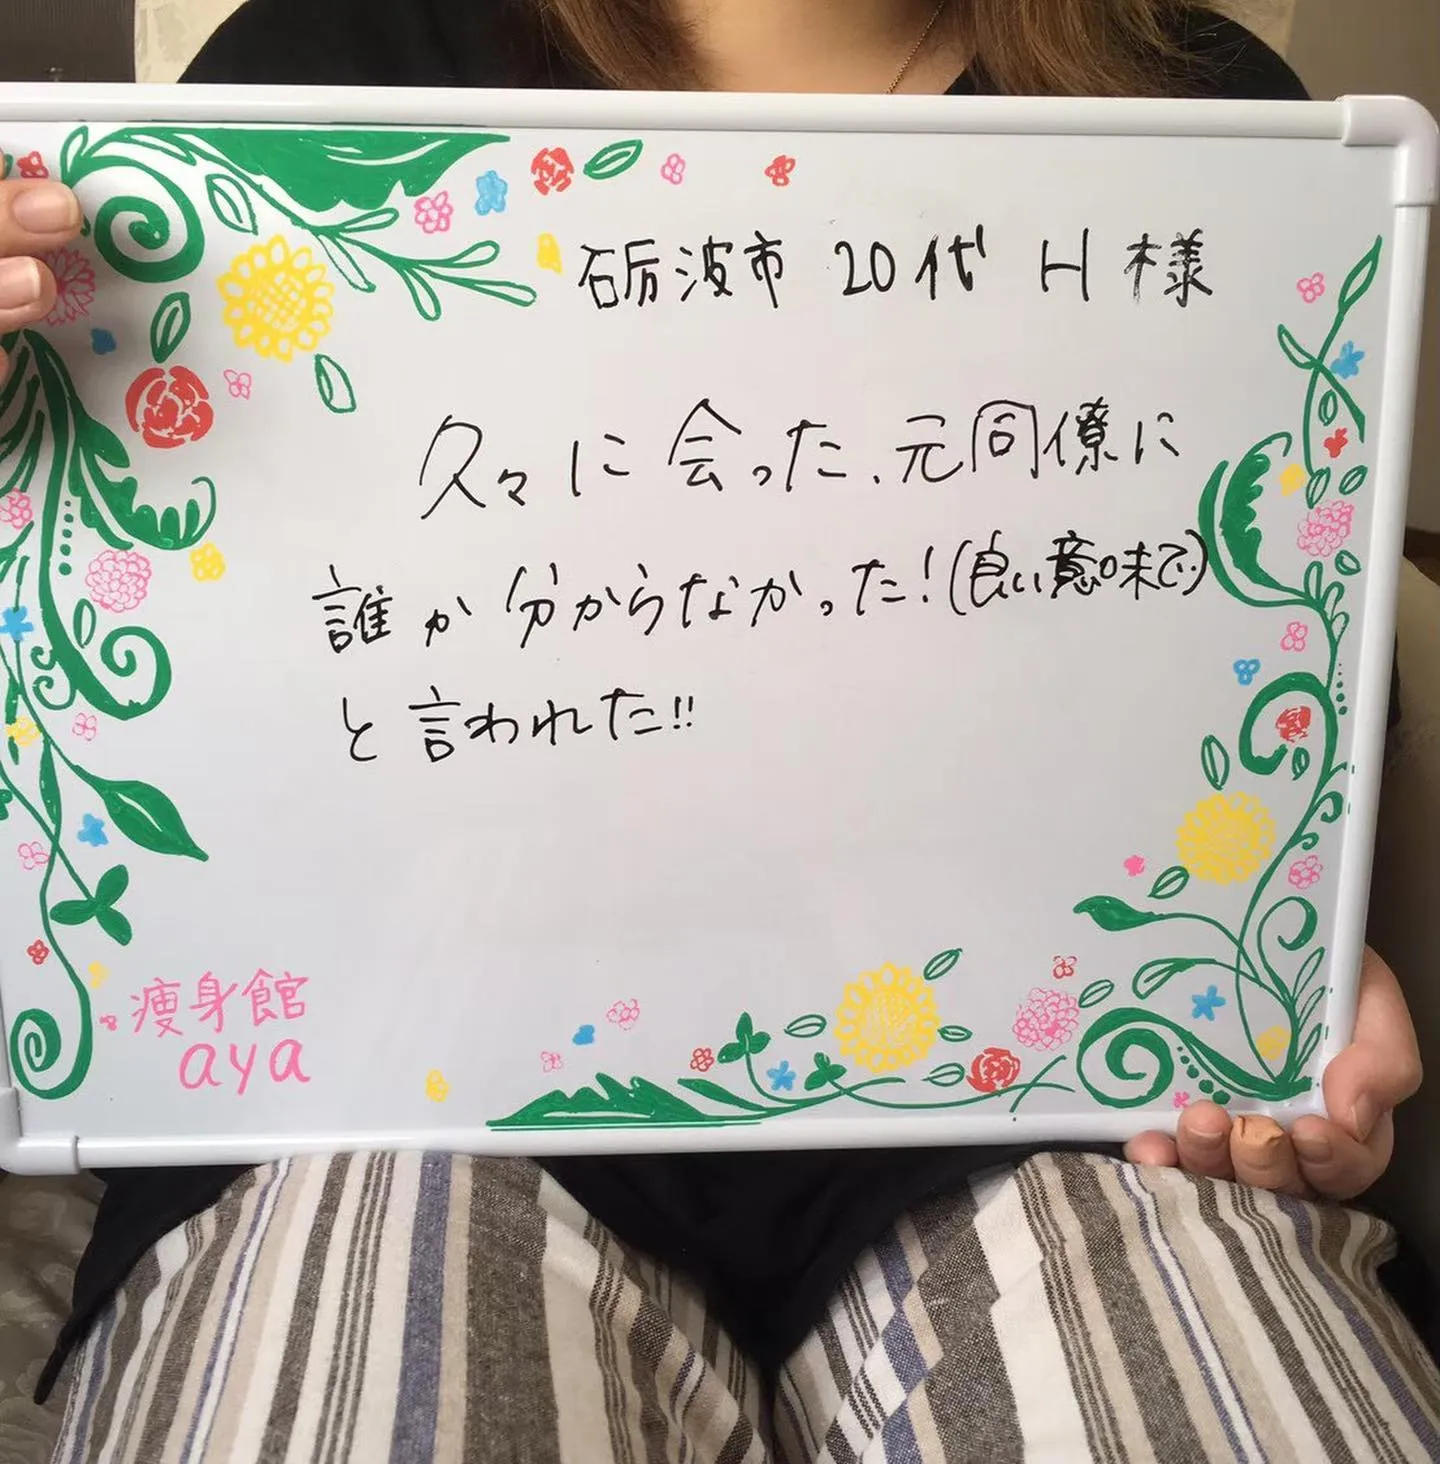 砺波市 20代 H様
久々に会った、元同僚に
誰か分からなかった!(良い意味で)
と言われた!!
痩身館
aya